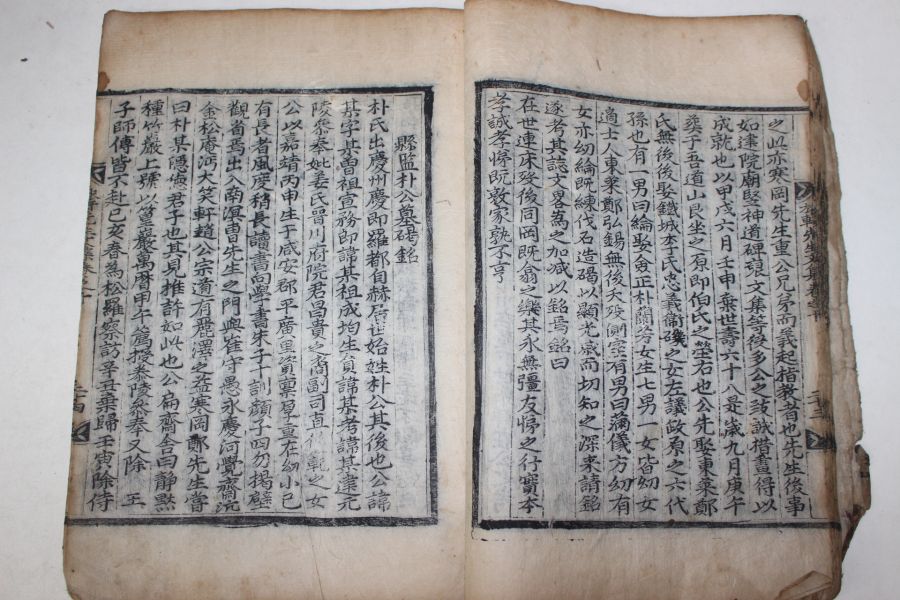 之此亦寒岡先生重公兄弟而義起指教者也先生後事
如建院廟竪神道碑頒文集等役多公之誠措畫得以
成就也以甲戌六月壬申棄世壽六十八是歲九月庚午
葬于吾道山艮坐之原即伯氏之塋右也公先娶東萊鄭
氏無後後娶鐵城李氏忠義衛磯之女左議政原之六代
孫也有一男曰綸娶僉正朴蘭芳女生七男一女皆幼女
適士人東萊鄭弘錫無後夫歿側室有男曰滿儀方幼有
女亦幼綸旣練伐石造碣以顯光感而切知之深來請銘
遂考其誌文畧爲之加减以銘焉銘曰
在世連床歿後同岡旣翕之樂其永無彊友悌之行實本
孝誠孝悌旣敦家孰不亨
縣監朴公墓碣銘
朴氏出慶州慶即羅都自赫居世始姓朴公其後也公諱
某字某曾祖宣務郎諱某祖成均生員諱某考諱某健元
陵參奉妣姜氏晉川府院君曰貴之裔副司直範之女
公以嘉靖丙申生于咸安郡平廣里資稟厚重在幼小已
有長者風度稍長讀書尚學書朱子訓顏子四勿揭壁
觀省焉出入南溟曺先生之門與崔守愚永慶河覺齋沆
金松庵沔大笑軒趙公宗道有麗澤之益寒岡鄭先生嘗
曰朴某隱德君子也其見推許如此也公扁齋舍曰靜默
種竹巖上號以篁巖萬曆甲午薦授泰陵參奉又除 王
子師傅皆不赴己亥春爲松羅察訪辛丑棄歸壬寅除侍